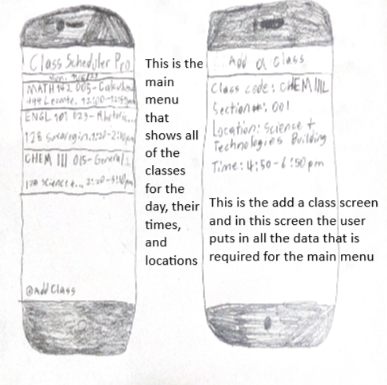 Class Scheduler Pro
MATH 142 003-Calculus
ENGL 101 023-Rhetoric...
CHEM 111 015-General
@Add Class
This is the
main
menu
that
shows all
of the
classes
for the
day, their
times,
and
locations
Add a Class
Class code: CHEM 111
Section: 001
Location: Science +
Technologies Building
Time: 4:50-6:50pm
This is the add a class screen
and in this screen the user
puts in all the data that is
required for the main menu